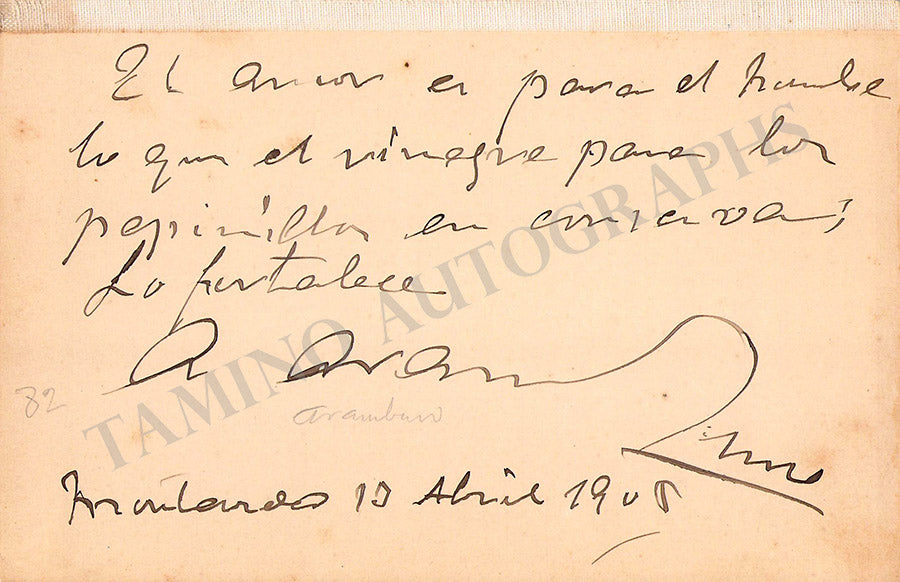 El amor es para el hombre
lo que el vinagre para los
pepinillos en conserva;
Lo fortalece
A Aram
82
aramburo
Montevideo 13 Abril 1908
TAMINO AUTOGRAPHS